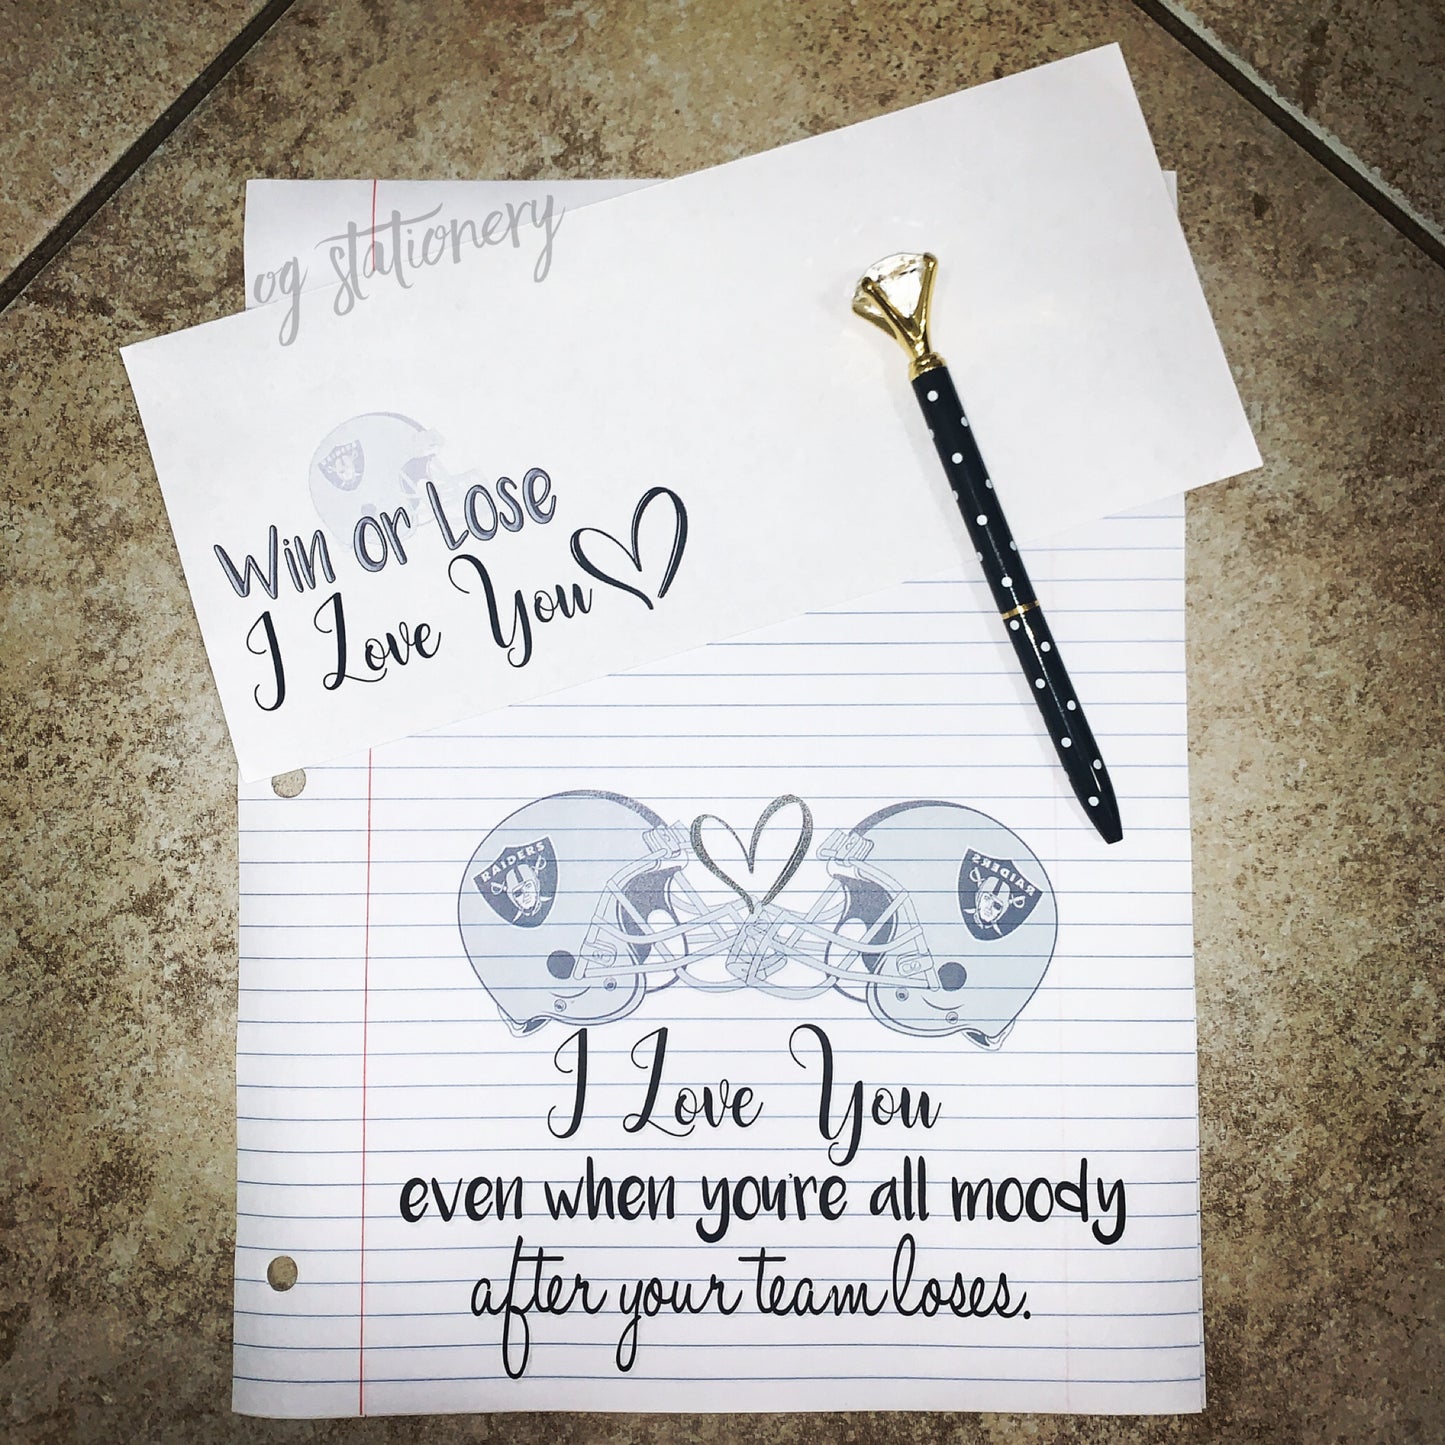 og stationery
RAIDERS
Win or Lose
I Love You
RAIDERS
RAIDERS
I Love You
even when you're all moody
after your team loses.